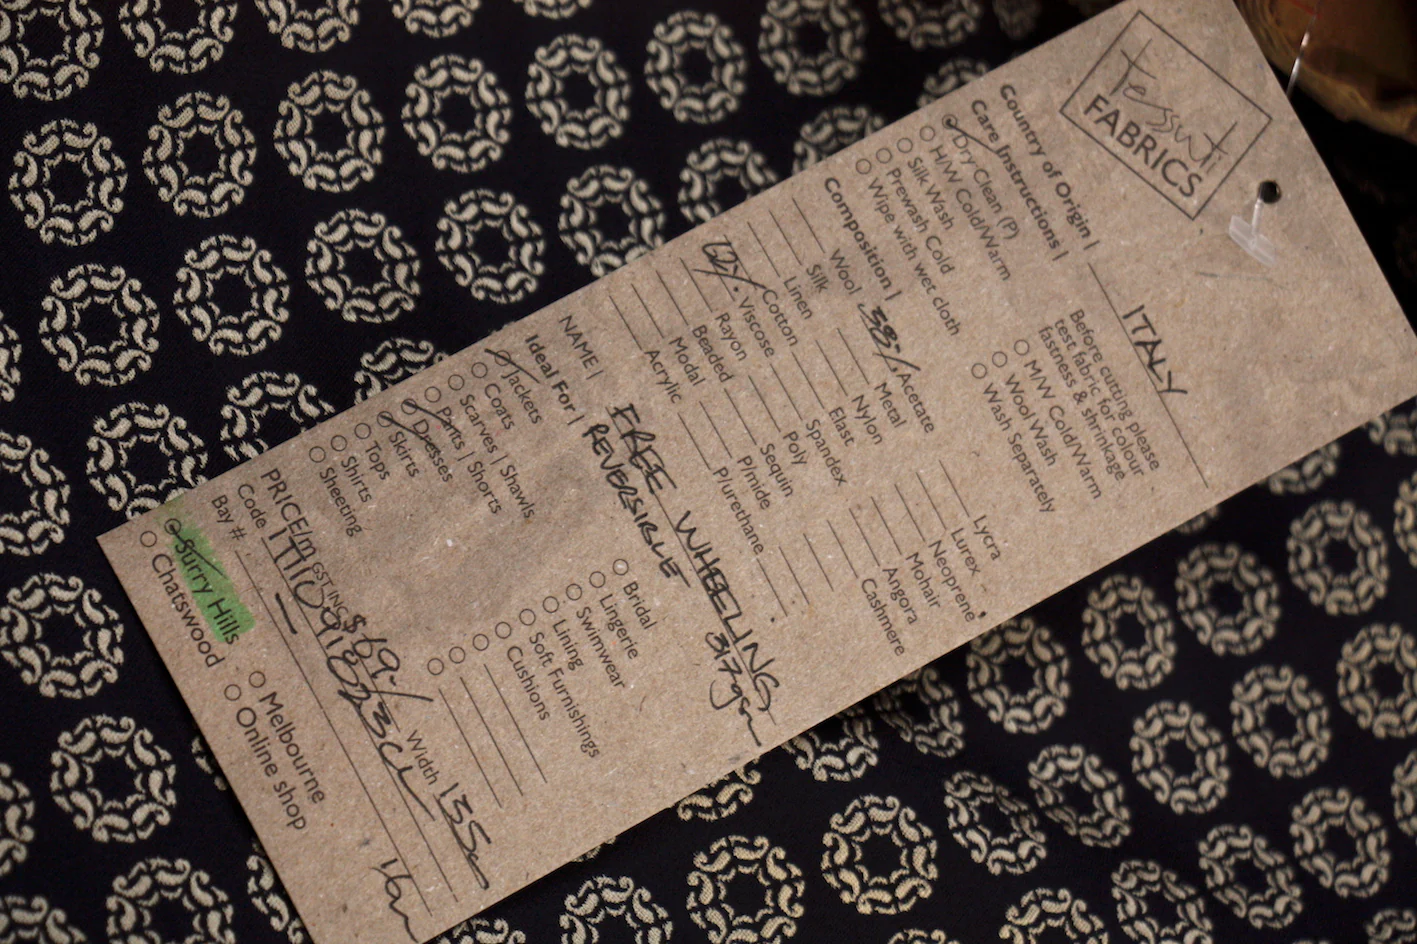 Tessuti
FABRICS
Country of Origin | ITALY
Care Instructions |
Dry Clean (P)
H/W Cold/Warm
Silk Wash
Prewash Cold
Wipe with wet cloth
Before cutting please
test fabric for colour
fastness & shrinkage
M/W Cold/Warm
Wool Wash
Wash Separately
Composition |
Wool 38% Acetate Lycra
Silk Metal Lurex
Linen Nylon Neoprene
Cotton Elast Mohair
62% Viscose Spandex Angora
Rayon Poly Cashmere
Beaded Sequin
Modal P/mide
Acrylic P/urethane
NAME | FREE WHEELING
REVERSIBLE 317gsm
Ideal For |
Jackets Bridal
Coats Lingerie
Scarves | Shawls Swimwear
Pants | Shorts Lining
Dresses Soft Furnishings
Skirts Cushions
Tops
Shirts
Sheeting
PRICE/m GST INC $69.-/ Width 135
Code
Bay # 1.6m
Surry Hills Melbourne
Chatswood Online shop